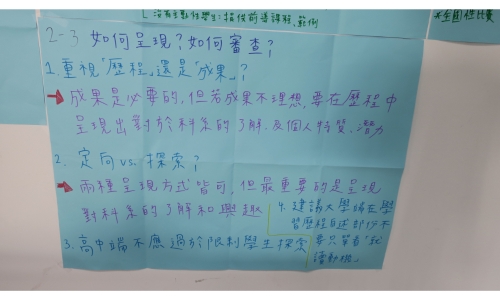 沒有主動性學生:提供前導課程,範例
*全國性比賽
2-3 如何呈現?如何審查?
1.重視「歷程」還是「成果」?
成果是必要的,但若成果不理想,要在歷程中
呈現出對於科系的了解.及個人特質、潛力
2. 定向vs.探索?
兩種呈現方式皆可,但最重要的是呈現
對科系的了解和興趣
3.高中端不應過於限制學生探索
4.建議大學端在學
習歷程自述部份不
要只單看「就
讀動機」